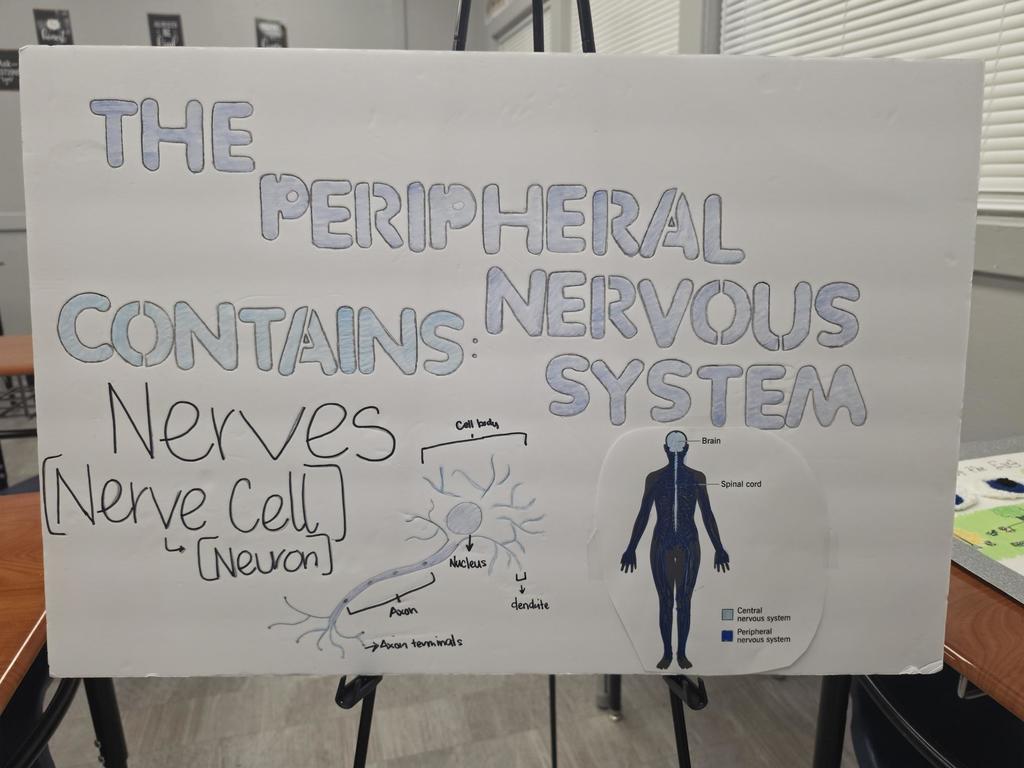 THE
PERIPHERAL
NERVOUS
SYSTEM
CONTAINS:
Nerves
[Nerve Cell]
[Neuron]
Cell body
Nucleus
dendite
Axon
Axon terminals
Brain
Spinal cord
Central
nervous system
Peripheral
nervous system